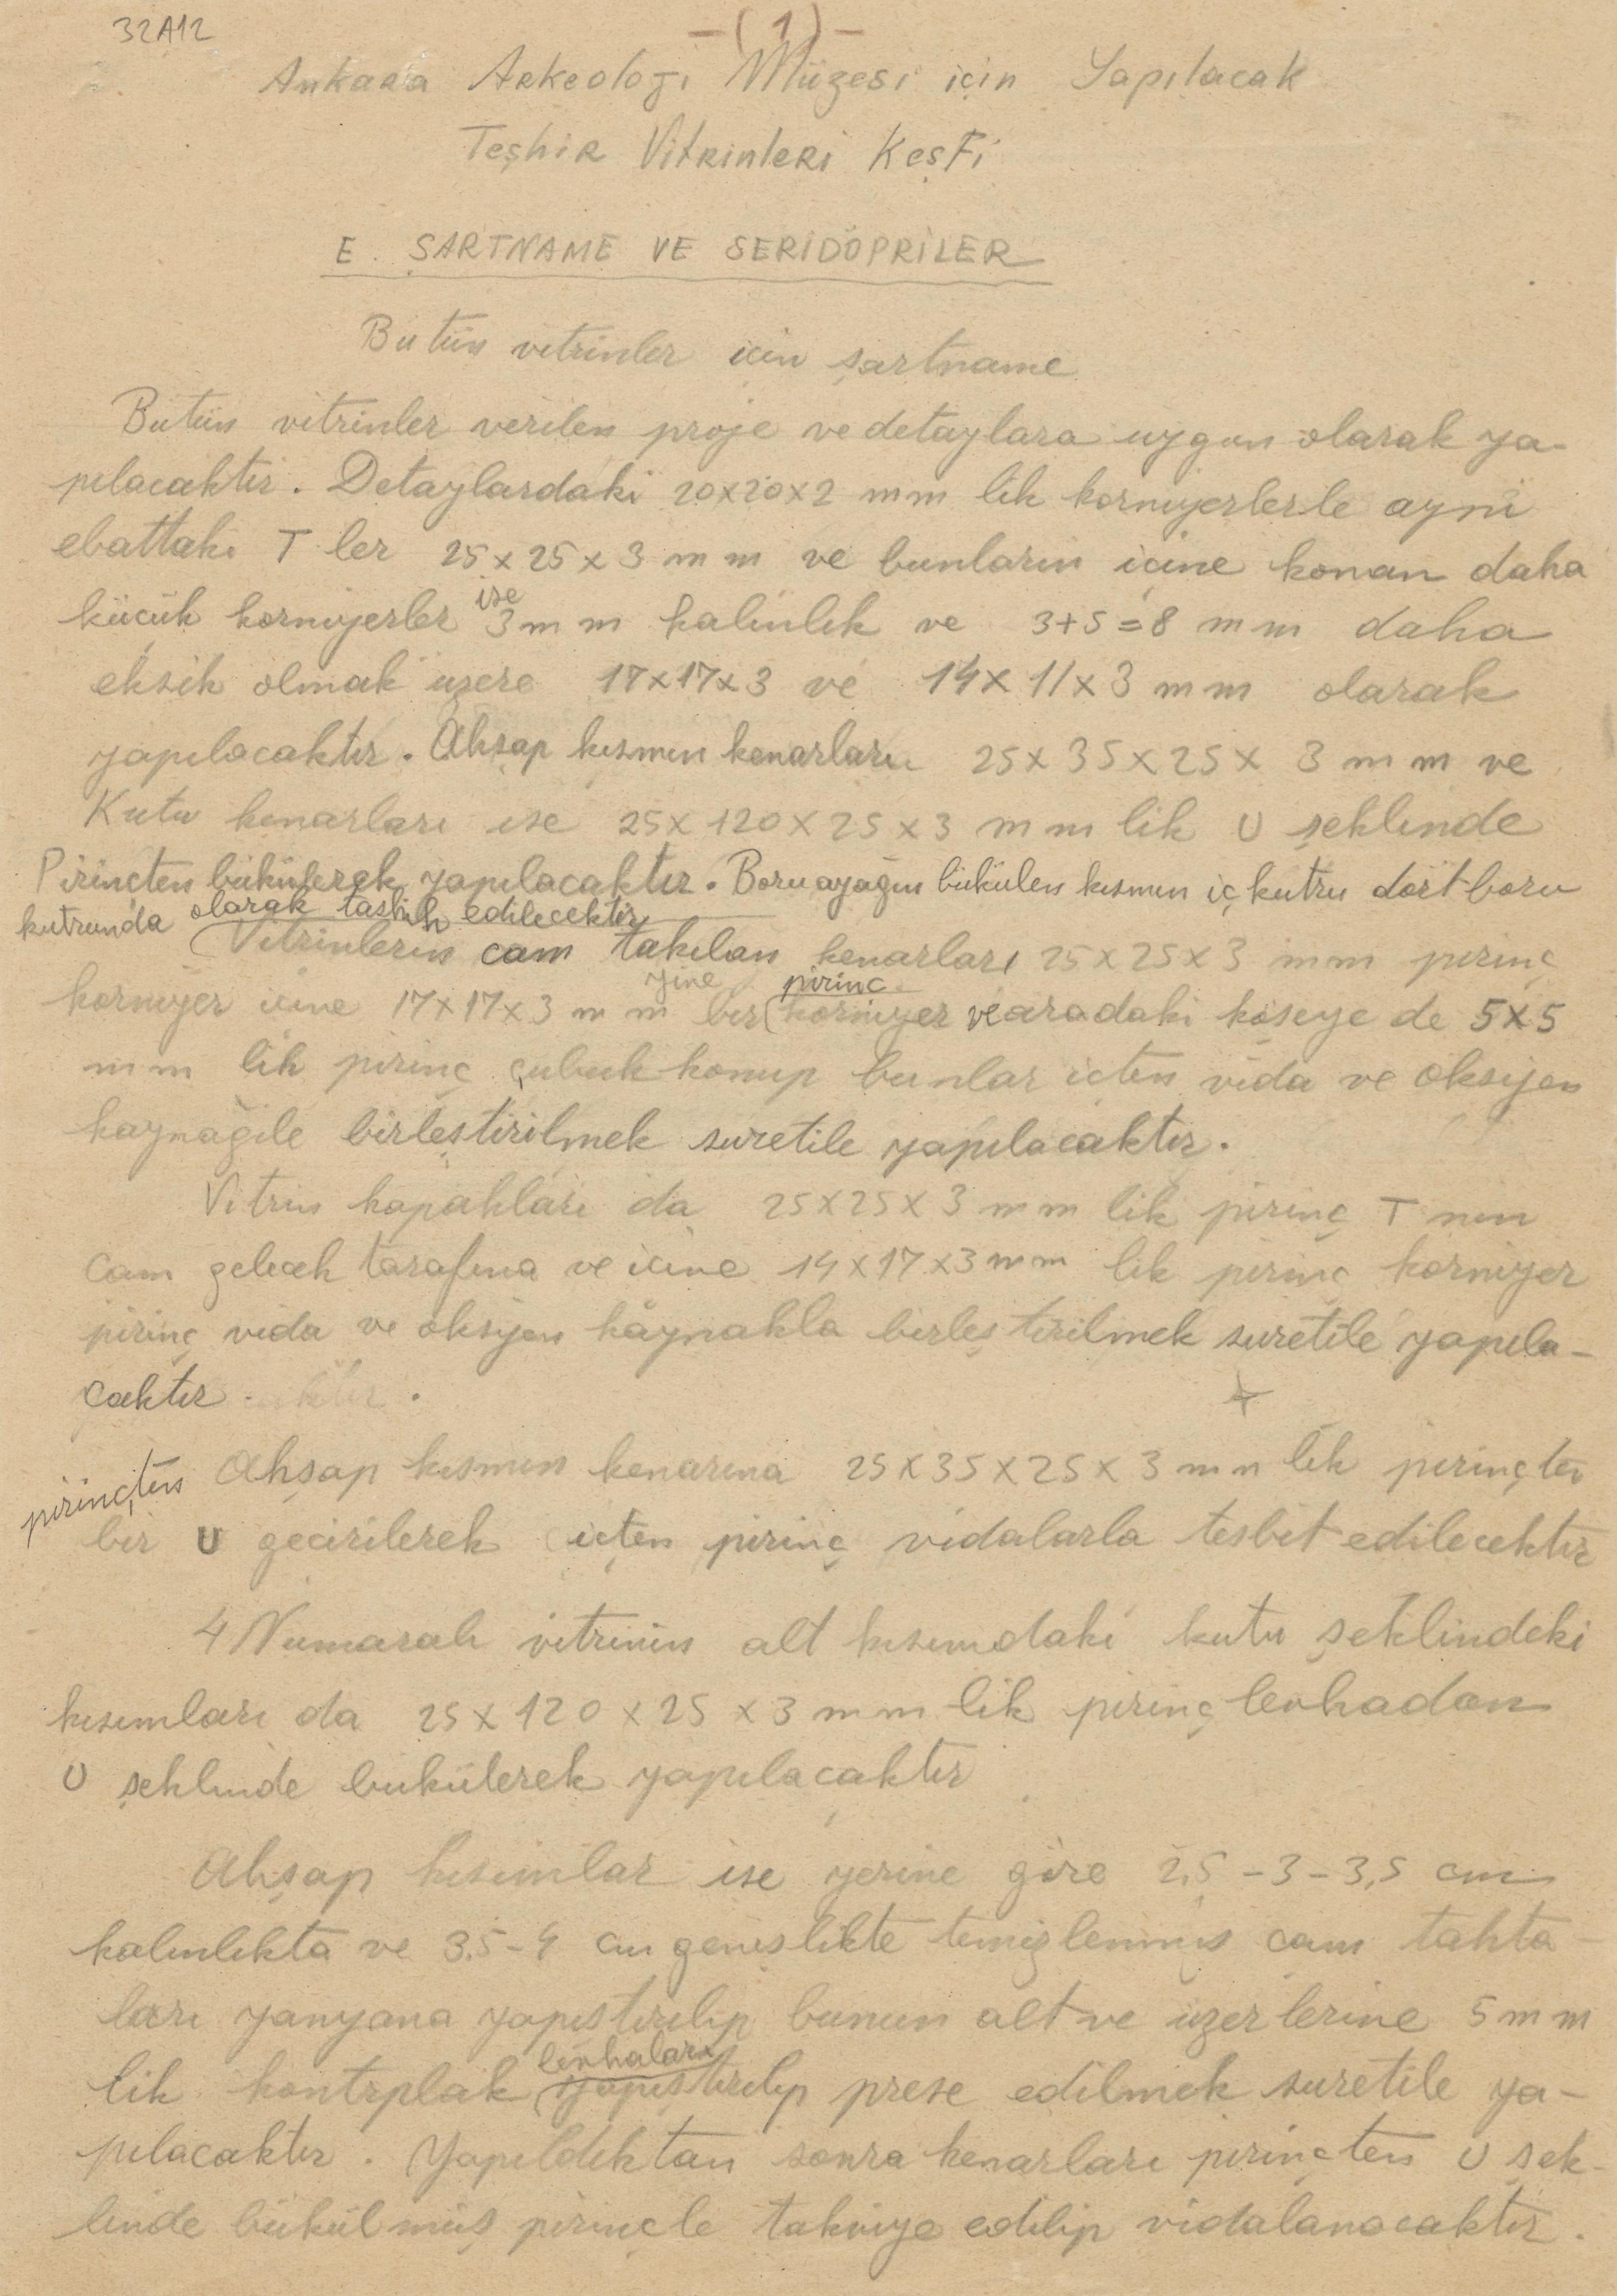 32A12
-(1)-
Ankara Arkeoloji Müzesi için Yapılacak
Teşhir Vitrinleri Keşfi
E. ŞARTNAME VE SERİDÖPRİLER
Butün vitrinler icin şartname
Butün vitrinler verilen proje ve detaylara uygun olarak ya-
pılacaktır. Detaylardaki 20x20x2 mm lik korniyerlerle ayni
ebattaki T ler 25x25x3 mm ve bunların içine konan daha
küçük korniyerler ise 3mm kalınlık ve 3+5=8 mm daha
eksik olmak üzere 17x17x3 ve 14x11x3 mm olarak
yapılacaktır. Ahşap kısmın kenarları 25x35x25x3 mm ve
Kutu kenarları ise 25x120x25x3 mm lik U şeklinde
Pirinçten bükülerek yapılacaktır. Boru ayağın bükülen kısmın iç kutru dört boru
kutrunda olarak tashih edilecektir
Vitrinlerin cam takılan kenarları 25x25x3 mm pirinç
korniyer icine 17x17x3 mm yine bir pirinc korniyer ve aradaki köşeye de 5x5
mm lik pirinç çubuk konup bunlar içten vida ve oksijen
kaynağile birleştirilmek suretile yapılacaktır.
Vitrin kapakları da 25x25x3 mm lik pirinç T nin
cam gelecek tarafına ve icine 14x17x3mm lik pirinç korniyer
pirinç vida ve oksijen kaynakla birleştirilmek suretile yapıla-
caktır.
Ahşap kısmın kenarına 25x35x25x3 mm lik pirinçten
pirinçten
bir U geçirilerek içten pirinç vidalarla tesbit edilecektir
4 Numaralı vitrinin alt kısımdaki kutu şeklindeki
kısımları da 25x120x25x3 mm lik pirinç levhadan
U şeklinde bükülerek yapılacaktır
Ahşap kısımlar ise yerine göre 2,5-3-3,5 cm
kalınlıkta ve 3.5-4 cm genişlikte temizlenmiş cam tahta-
ları yanyana yapıştırılıp bunun alt ve üzerlerine 5 mm
lik kontrplak levhaları yapıştırılıp prese edilmek suretile ya-
pılacaktır. Yapıldıktan sonra kenarları pirinçten U şek-
linde bükülmüş pirinçle takviye edilip vidalanacaktır.